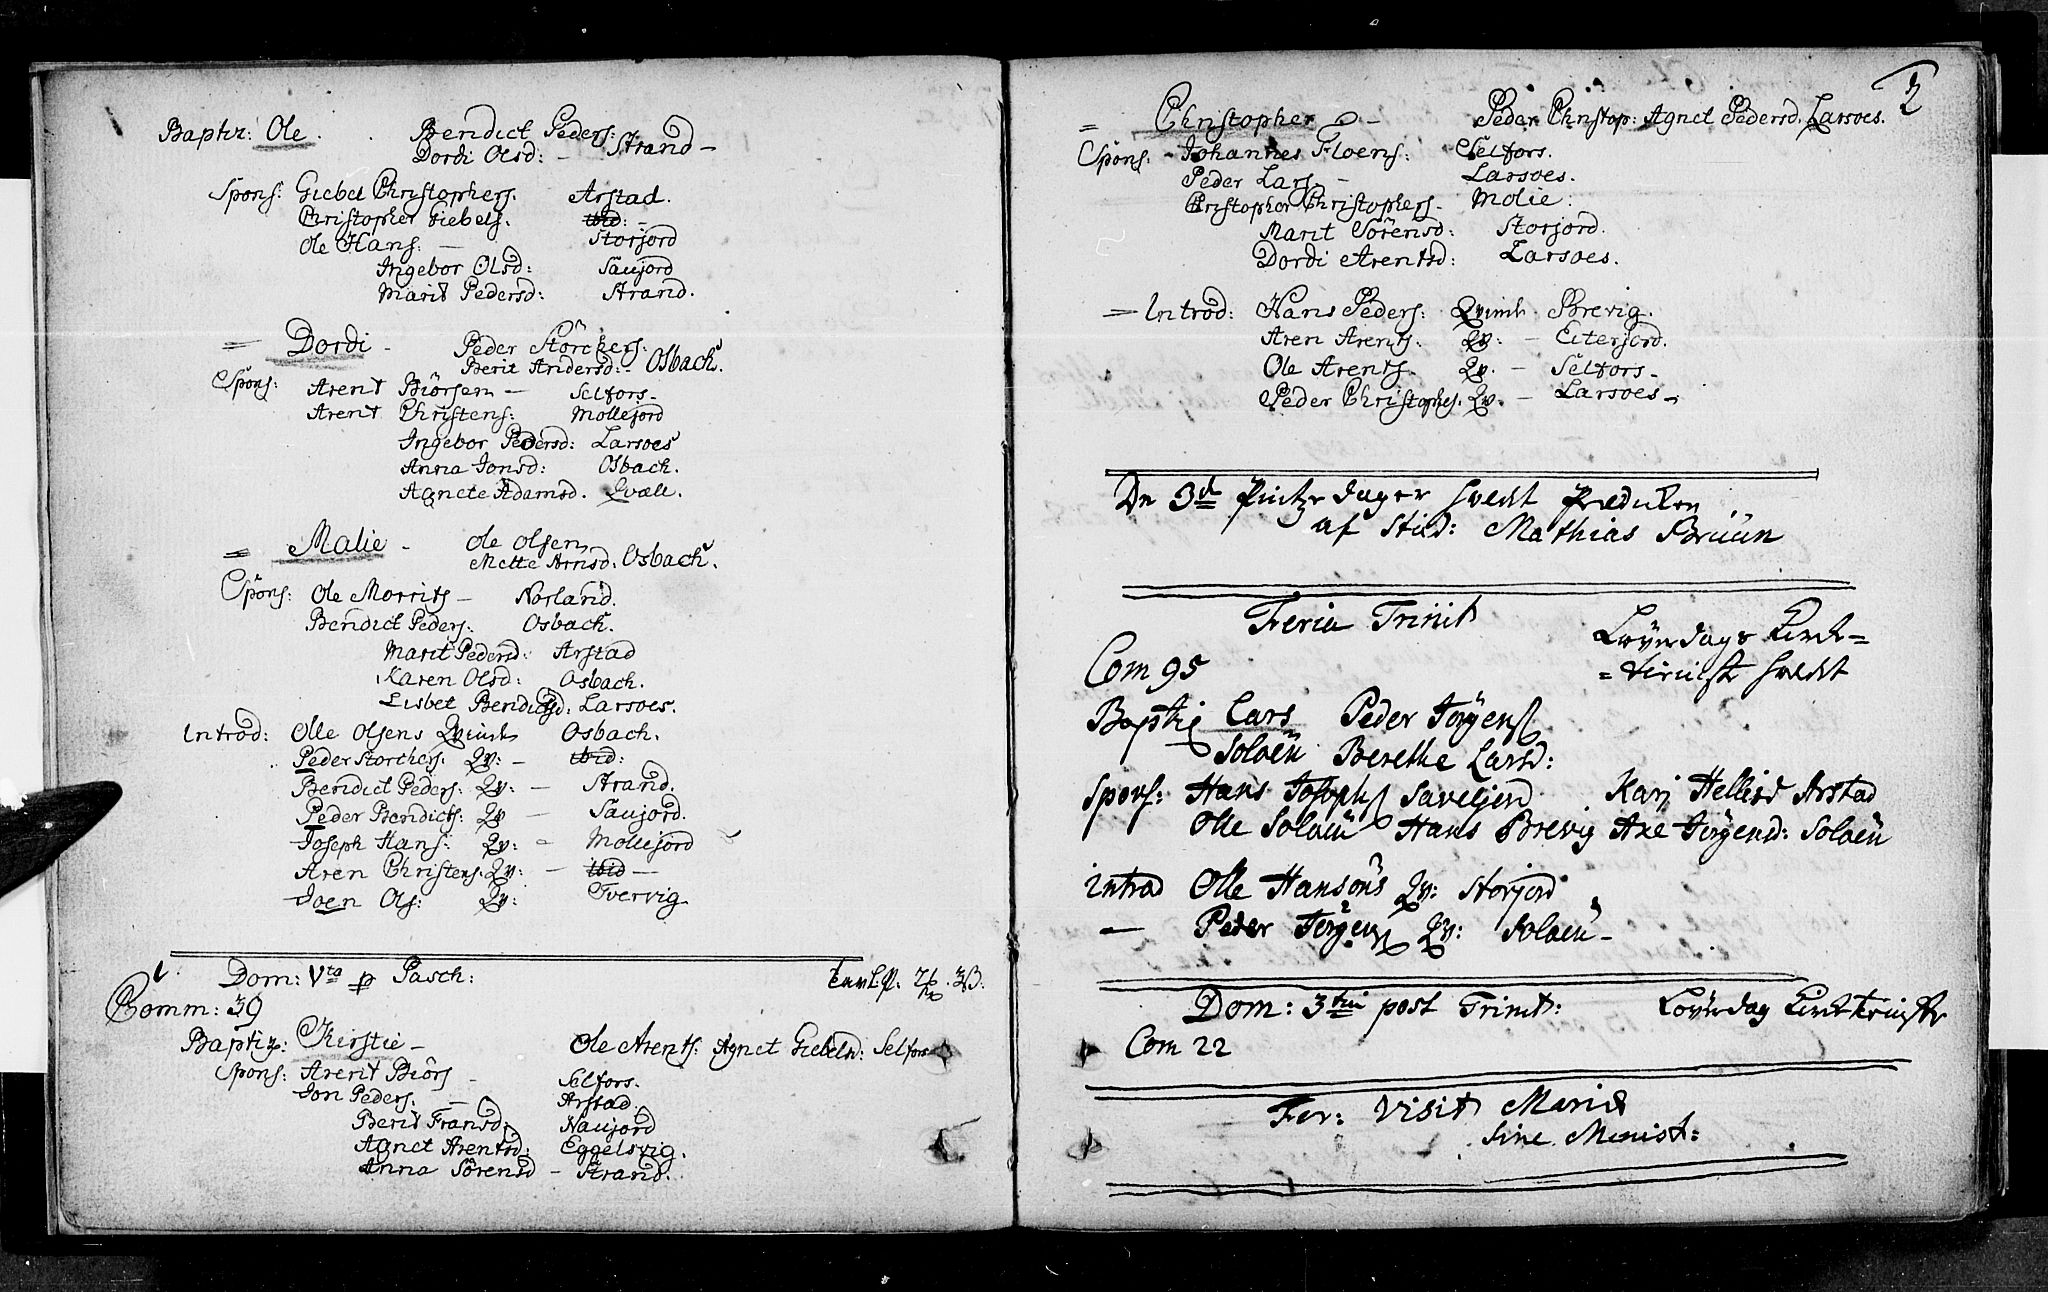 Baptiz: Ole. Bendict Peders:
Dordi Olsd: - Strand -
Spons: Giebel Christophers. Arstad.
Christopher Giebels. ibid: -
Ole Hans: - Storjord
Ingebor Olsd: Saujord
Marit Pedersd: Strand.
= Dordi - Peder Störchers.
Berit Andersd: - Osbach.
Spons: Arent Biörsen - Selfors -
Arent Christens: Mollejord
Ingebor Pedersd: Larsoes
Anna Jonsd: Osbach.
Agnete Adamsd. Qvæle.
= Malie - Ole Olsen,
Mette Arnsd. Osbach.
Spons: Ole Morrits - Norland.
Bendict Peders: Osbach.
Marit Pedersd: Arstad
Karen Olsd: Osbach.
Lisbet Bendictsd: Larsoes.
Introd: Olle Olsens Qvinde Osbach.
Peder Storchers. Qv: - ibid:
Bendict Peders: Qv: - Strand.
Peder Bendicts: Qv - Saujord.
Joseph Hans: Qv: - Mollejord
Aren Christens. Qv: - ibid -
Joen Ols: Qv: Tvervig
Dom: Vta p Pasch:
Comm: 39
Baptiz: Kirstie - Ole Arents: Agnet Giebelsd: Selfors
Spons: Arent Biörs - Selfors.
Jon Peders. - Arstad.
Berit Fransd: Naujord
Agnet Arentsd: Eggelsvig.
Anna Sörensd - Strand.
2
= Christopher - Peder Christop: Agnet Pedersd. Larsoes.
Spons: Johannes Floens: Selfors.
Peder Lars. - Larsoes.
Christopher Christophers - Molie:
Marit Sörensd: Storjord.
Dordi Arentsd: Larsoes.
= Introd: Hans Peders: Qvinde Brevig.
Aren Arents. Qv: - Eiterjord.
Ole Arents. Qv. - Selfors -
Peder Christophs. Qv. - Larsoes -
De 3d Pintze dager holdt Prædiken
af Stud: Mathias Bruun
Feria Trinit Löverdags Kirke=
Com 95 =tieniste holdt
Baptiz Lars Peder Jörgens
Soloen Berethe Larsd:
Spons: Hans Josephs Saveljord Kari Hellisd Arstad
Olle Soloen Hans Brevig Axe Jörgend: Soloen
introd Olle Hansöns Qv: Storjord
- Peder Jörgens Qv: Soloen -
Dom: 3tia post Trinit: Löverdag Kirketieniste
Com 22
Fer: Visit Mariæ
sine Minist: